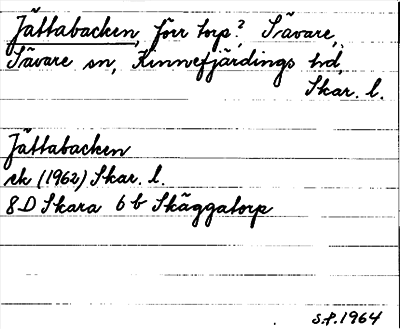 Jättabacken, förr torp?, Sävare,
Sävare sn, Kinnefjärdings hd,
Skar. l.
Jättabacken
ek (1962) Skar. l.
8D Skara 6b Skäggatorp
S.F. 1964